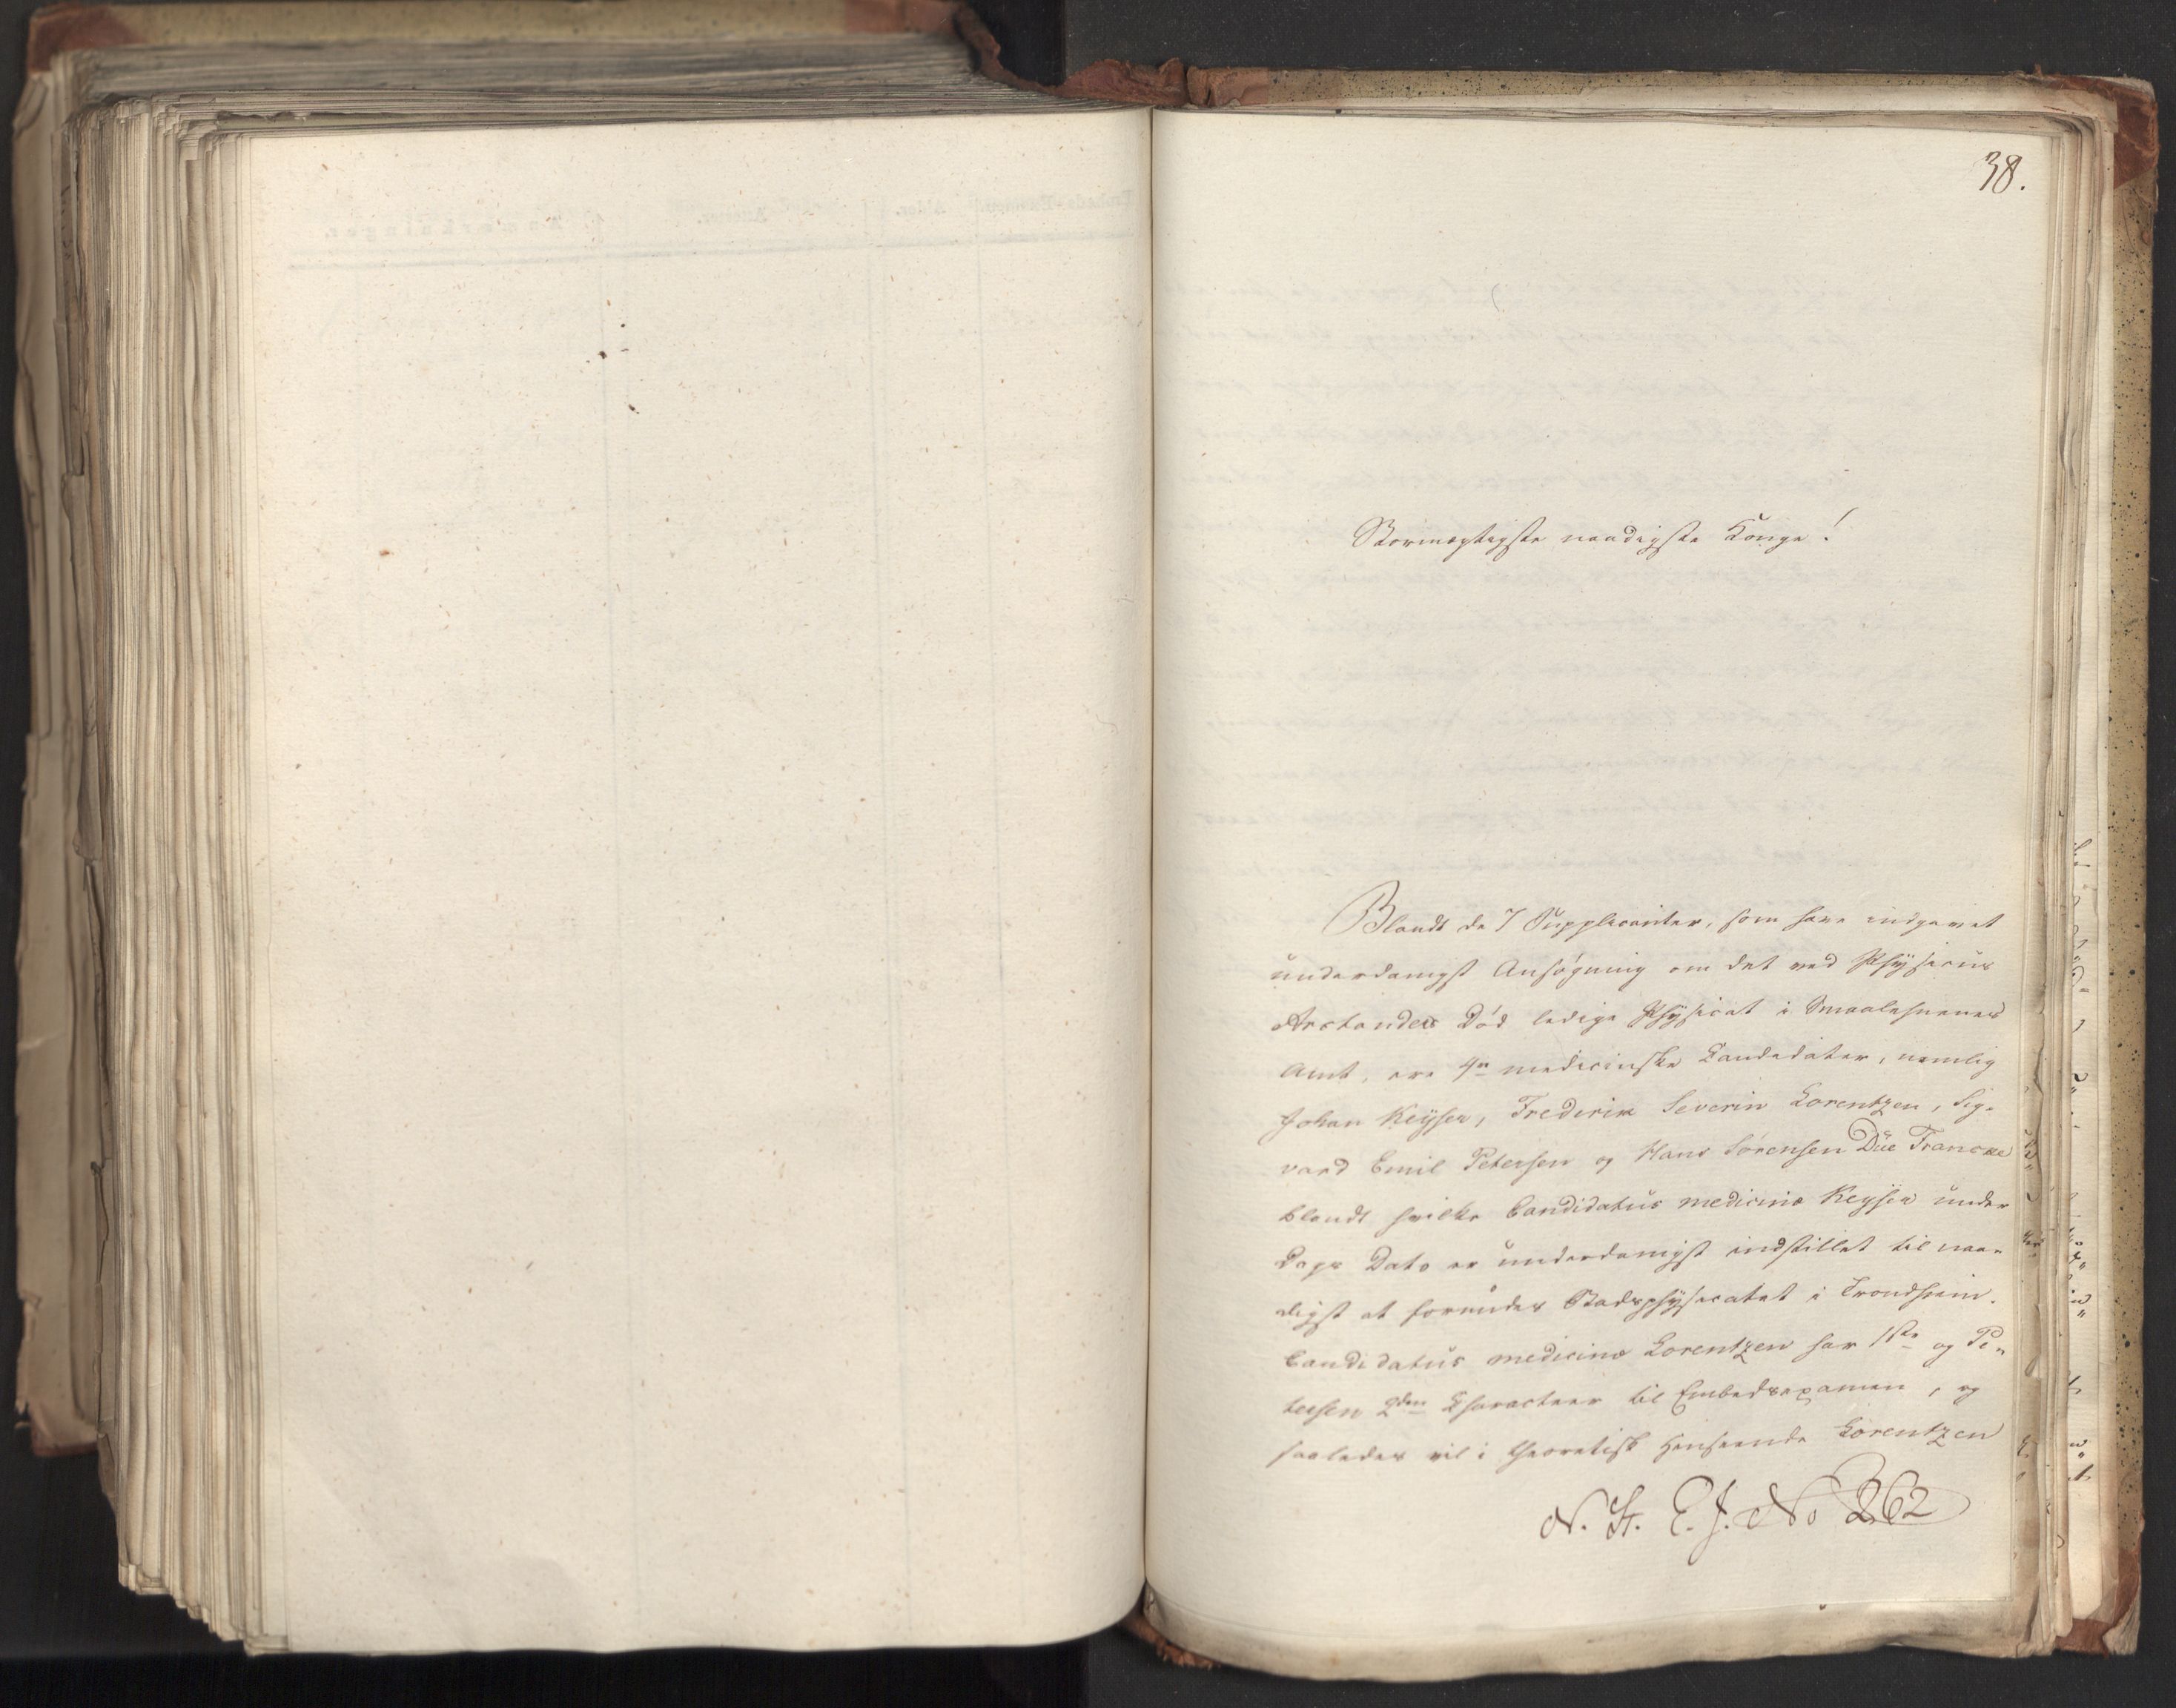 38.
Stormægtigste naadigste Konge!
Blandt de 7 Supplicanter, som have indgivet
underdanigst Ansøgning om det ved Physicus
Arctanders Død ledige Physicat i Smaalehnenes
Amt, ere 4re medicinske Candidater, nemlig
Johan Keyser, Frederik Severin Lorentzen, Sig-
vard Emil Petersen og Hans Sørensen Due Francke
blandt hvilke Candidatus medicinæ Keyser under
Dags Dato er underdanigst indstillet til naa-
digst at forundes Stadsphysicatet i Trondhiem.
Candidatus medicinæ Lorentzen har 1ste og Pe-
tersen 2den Characteer til Embedsexamen, og
saaledes vil i theoretisk Henseende Lorentzen
N. St. E. J. No 262